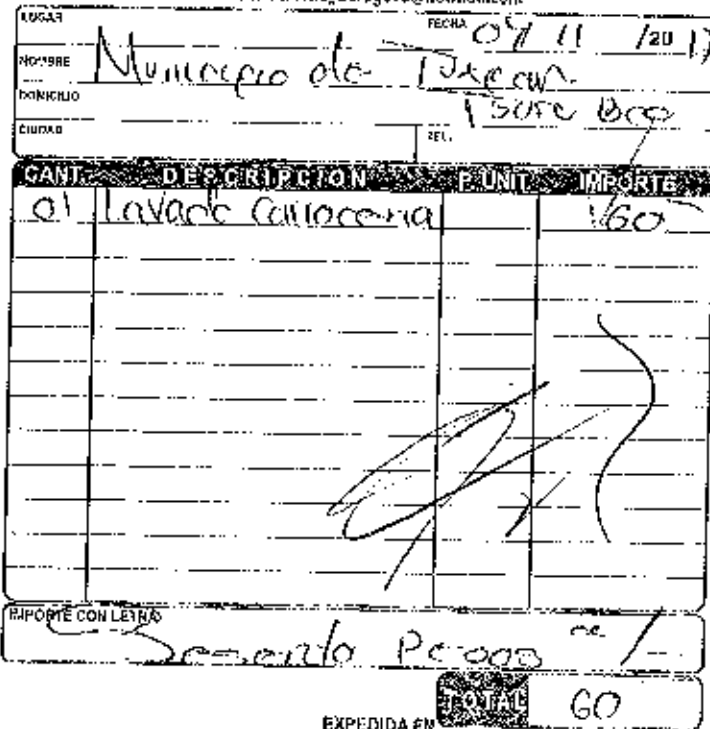 LUGAR
FECHA 09/ 11 /20 17
NOMBRE Municipio de
DOMICILIO Tsuru Bco
CIUDAD TEL.
CANT. DESCRIPCION P. UNIT. IMPORTE
01 Lavado Carroceria 60
IMPORTE CON LETRA
Sesenta Pesos
TOTAL 60
EXPEDIDA EN